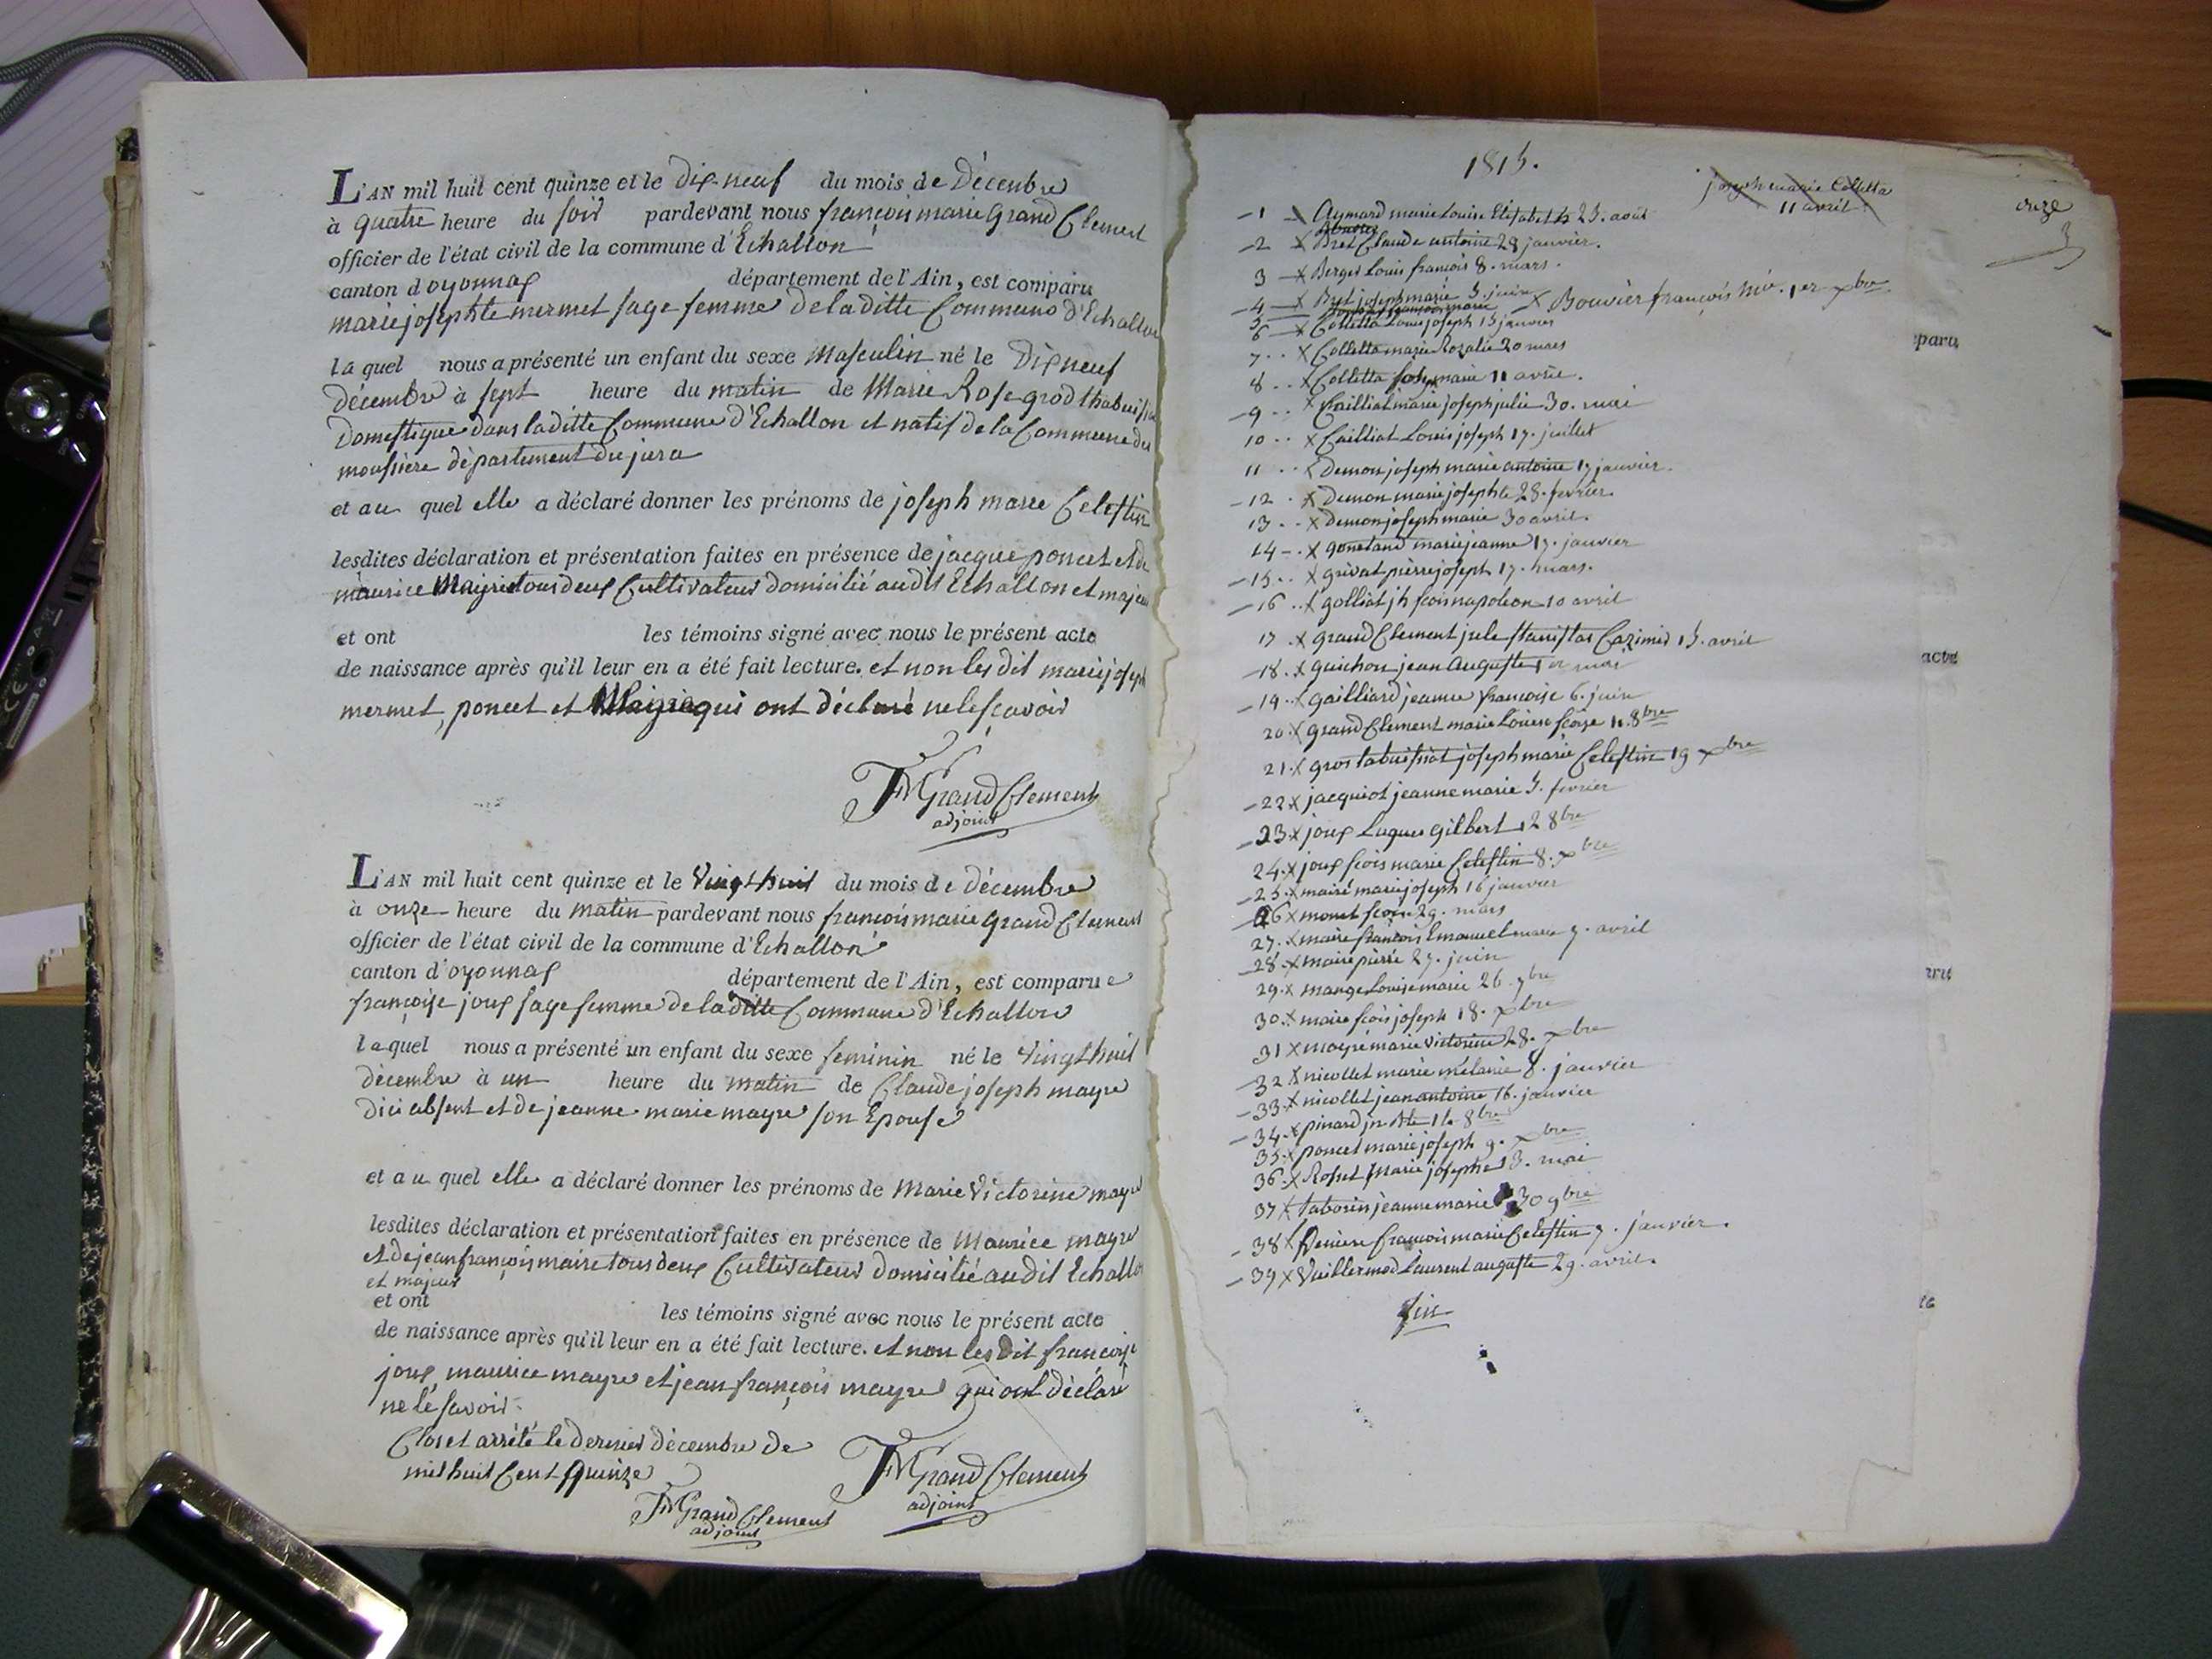 L'AN mil huit cent quinze et le Dix-neuf du mois de Décembre
à quatre heure du soir pardevant nous françois marie Grand Clement
officier de l'état civil de la commune d'Echallon
canton d'oyonnax département de l'Ain, est comparu
marie josephte mermet sage femme de la ditte Commune d'Echallon
laquel nous a présenté un enfant du sexe Masculin né le Dix neuf
décembre à sept heure du matin de Marie Rose grosthabuissia
Domestique dans la ditte Commune d'Echallon et natif de la Commune des
moussière département du jura
et au quel elle a déclaré donner les prénoms de joseph marie Celestin
lesdites déclaration et présentation faites en présence de jacque poncet et de
maurice Maigrie tous deux Cultivateur domicilié audit Echallon et majeu
et ont les témoins signé avec nous le présent acte
de naissance après qu'il leur en a été fait lecture. et non les dit marie joseph
mermet, poncet et Maigrie qui ont déclaré ne le sçavoir
FM Grand Clement
adjoint
L'AN mil huit cent quinze et le Vingt huit du mois de décembre
à onze heure du matin pardevant nous françois marie Grand Clement
officier de l'état civil de la commune d'Echallon
canton d'oyonnax département de l'Ain, est comparue
françoise joux sage femme de la ditte Commune d'Echallon
laquel nous a présenté un enfant du sexe feminin né le Vingt huit
décembre à un heure du matin de Claude joseph mayre
dici absent et de jeanne marie mayre son Epouse
et au quel elle a déclaré donner les prénoms de Marie Victorine mayre
lesdites déclaration et présentation faites en présence de Maurice mayre
et de jean françois maire tous deux Cultivateur domicilié audit Echallon
et majeur
et ont les témoins signé avec nous le présent acte
de naissance après qu'il leur en a été fait lecture. et non les dit françoise
joux, maurice mayre et jean françois mayre qui ont déclaré
ne le savoir.
Clos et arrété le dernier décembre de
mil huit Cent Quinze
FM Grand Clement
adjoint
FM Grand Clement
adjoint
1815.
joseph marie Colletta
11 avril
onze
1 Aymard marie Louise Elisabeth 25. août
2 X Bret Claude antoine 28 janvier.
3 X Berger Louis françois 8. mars.
4 X Bret joseph marie 5. juin X Bouvier françois 1er xbre
5
6 X Colletta Louis joseph 15 janvier
7 X Colletta marie Rozalie 20 mars
8 X Colletta joseph marie 11 avril.
9 X Cailliat marie joseph julie 30. mai
10 X Cailliat Louis joseph 17. juillet
11 X Demon joseph marie antoine 17 janvier.
12 X Demon marie josephte 28. fevrier.
13 X Demon joseph marie 30 avril.
14 X gonetand marie jeanne 17. janvier
15 X grivat pierre joseph 17. mars.
16 X golliat jh fcois napoleon 10 avril
17 X Grand Clement jule stanislas Cazimir 15. avril
18 X guichon jean auguste 1er mai
19 X gailliard jeanne françoise 6. juin
20 X Grand Clement marie Louise fcoise 11. 8bre
21 X gros tabuissiat joseph marie Celestin 19 xbre
22 X jacquiot jeanne marie 5. fevrier
23 X joux Lugues Gilbert 12 8bre
24 X joux fcois marie Celestin 8. xbre
25 X mairé marie joseph 16 janvier
26 X monet fcois 29. mars
27 X maire françois Emanuel marie 7. avril
28 X maire pierre 27. juin
29 X mange Louise marie 26. 7bre
30 X maire fcois joseph 18. xbre
31 X mayre marie Victorine 28. xbre
32 X nicollet marie mélanie 8. janvier
33 X nicollet jean antoine 16. janvier
34 X pinard jn Bte 14. 8bre
35 X poncet marie joseph 9. xbre
36 X Rosset Marie josephe 13. mai
37 X taborin jeanne marie 30 9bre
38 X françois marie Celestin 7. janvier.
39 X Vuillermod Laurent auguste 29. avril.
fin
paru
acte